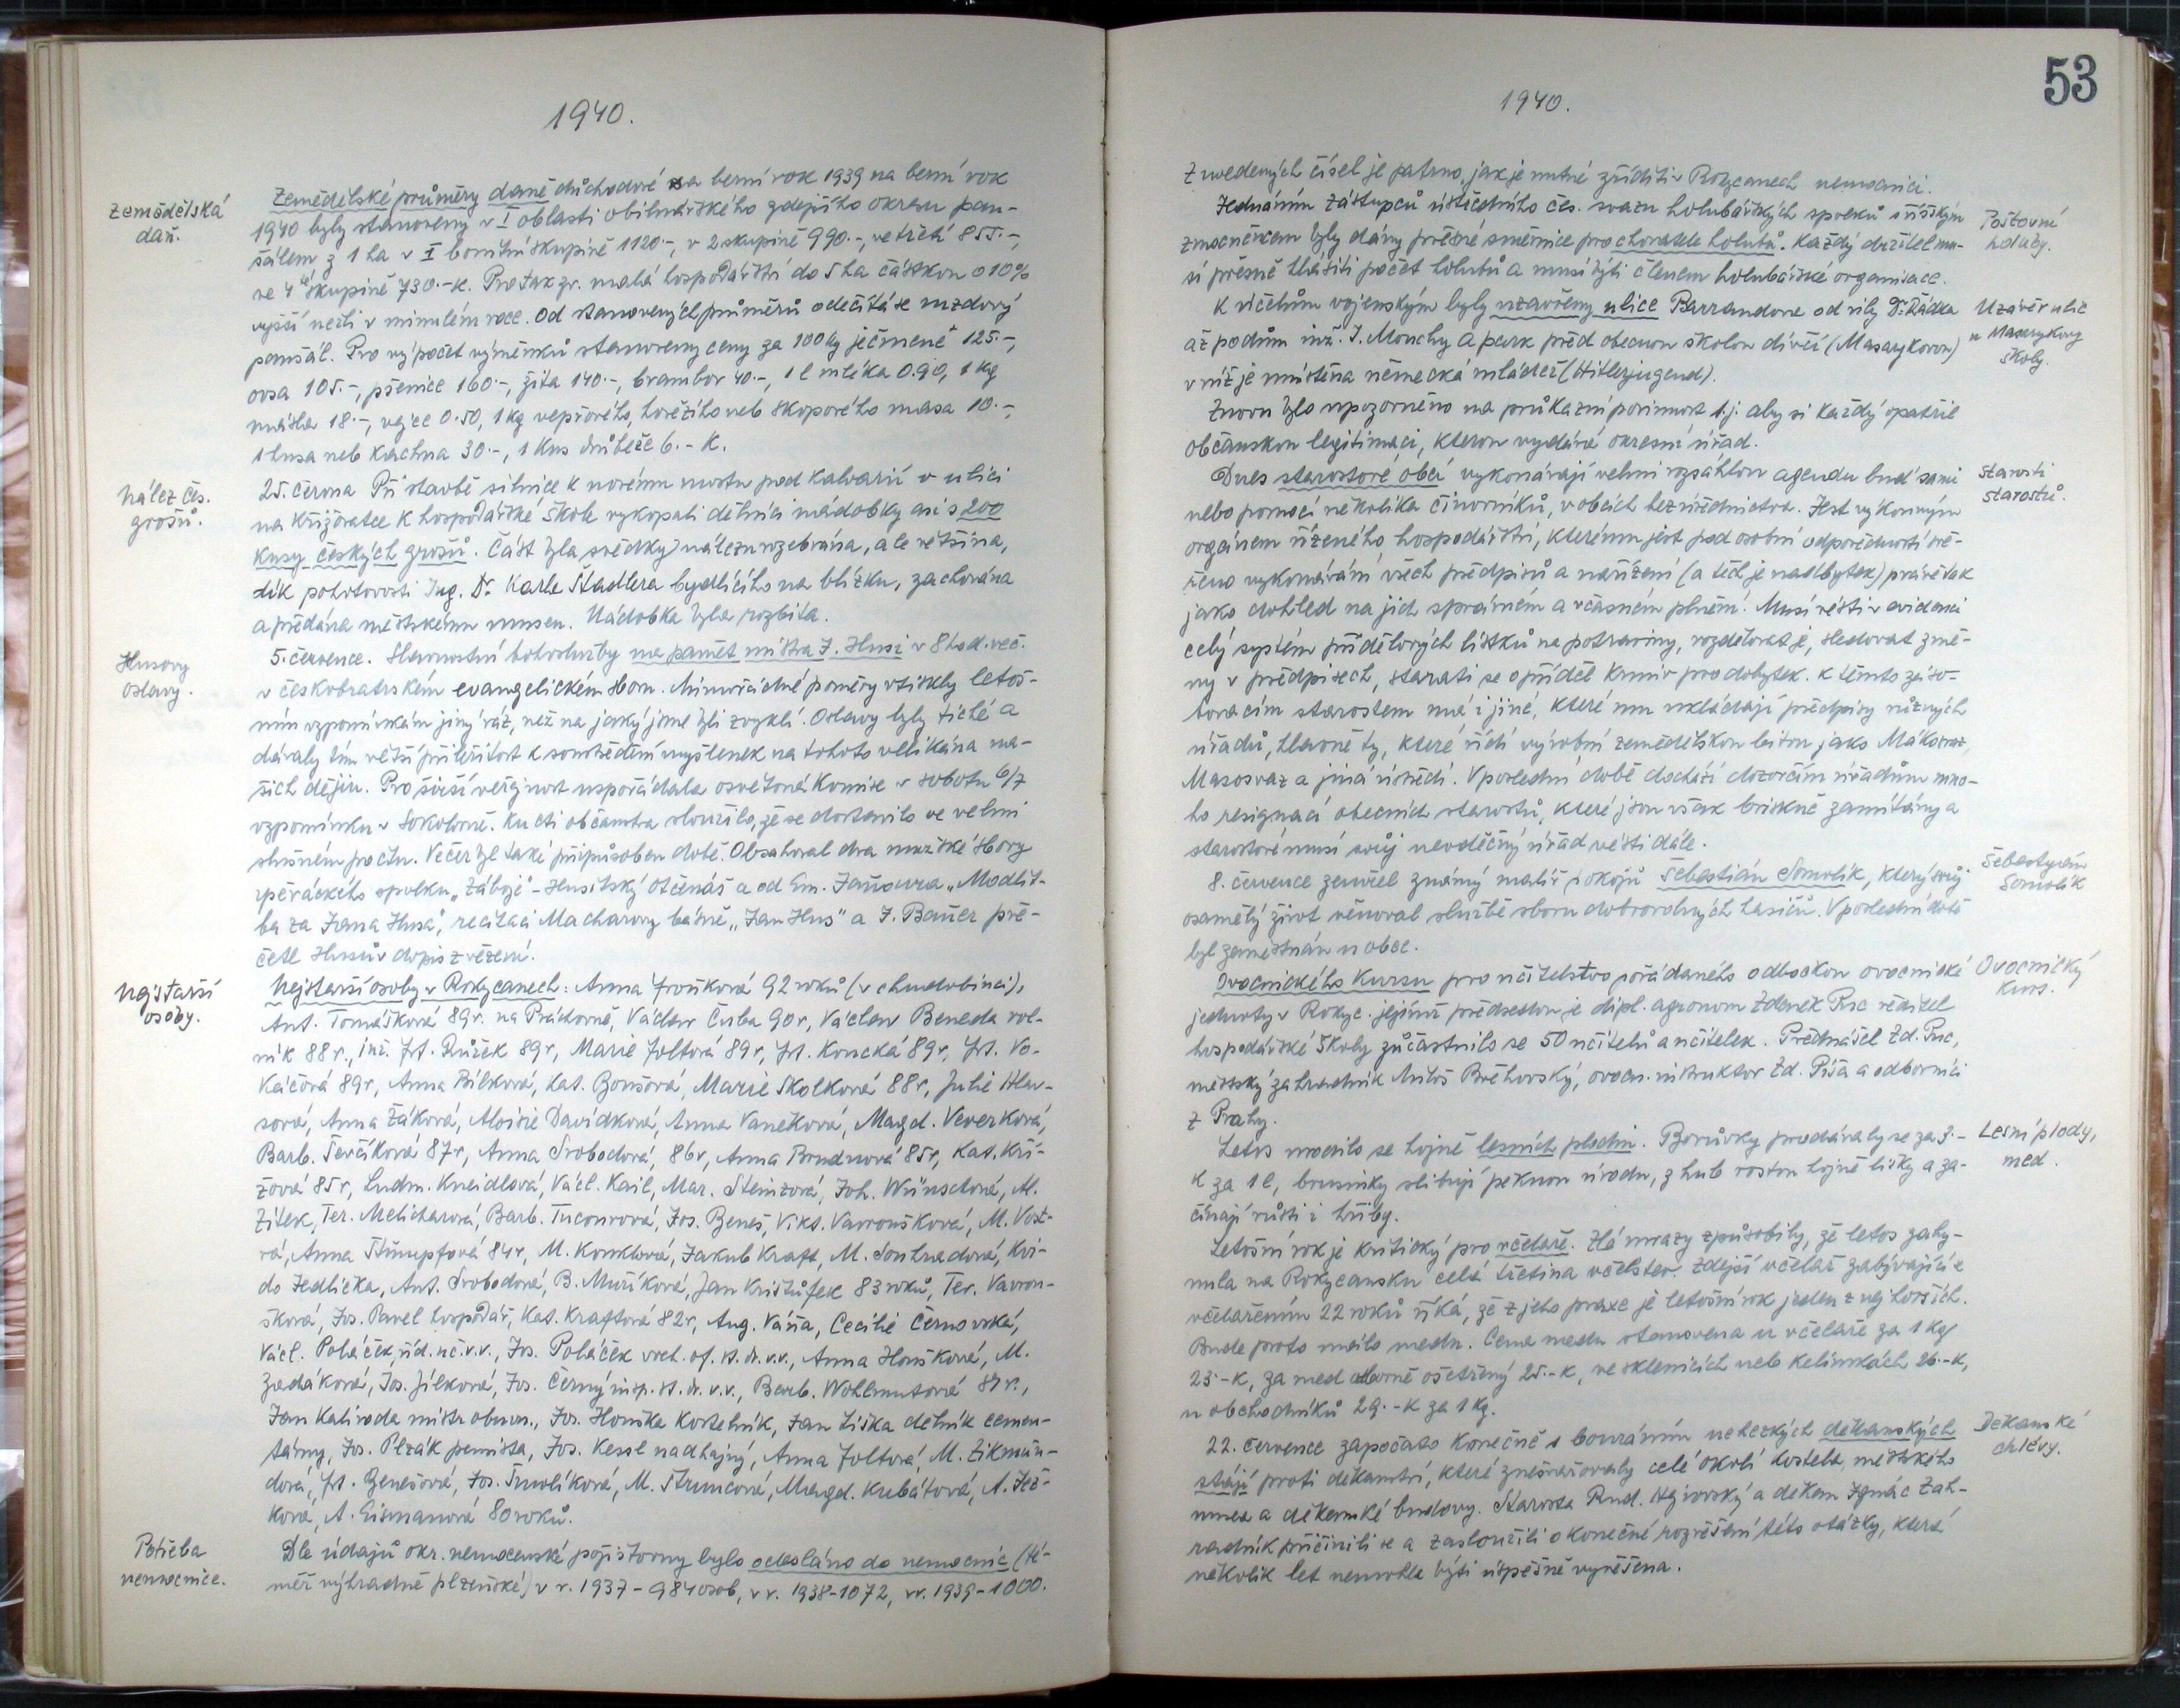 1940.
Zemědělská
daň.
Zemědělské průměry daně důchodové za berní rok 1939 na berní rok
1940 byly stanoveny v I oblasti obilnářského zdejšího okresu pau-
šálem z 1 ha v I bonitní skupině 1120.-, v 2 skupině 990.-, ve třetí 855.-,
ve 4té skupině 730.-K. Pro tak zv. malá hospodářství do 5 ha částkou o 10%
vyšší nežli v minulém roce. Od stanovených průměrů odečítá se mzdový
paušál. Pro výpočet výměnků stanoveny ceny za 100 kg ječmene 125.-,
ovsa 105.-, pšenice 160.-, žita 140.-, brambor 40.-, 1 l mléka 0.90, 1 kg
másla 18.-, vejce 0.50, 1 kg vepřového, hovězího neb skopového masa 10.-,
1 husa neb kachna 30.-, 1 kus drůbeže 6.- K.
Nález čes.
grošů.
25. června Při stavbě silnice k novému mostu pod Kalvarií v ulici
na křižovatce k hospodářské škole vykopali dělníci nádobky asi s 200
kusy českých grošů. Část byla svědky nálezu rozebrána, ale většina,
dík pohotovosti Ing. Dr. Karla Stadlera bydlícího na blízku, zachována
a předána městskému museu. Nádobka byla rozbita.
Husovy
oslavy.
5. července. Slavnostní bohoslužby na paměť mistra J. Husi v 8 hod. več.
v českobratrském evangelickém sboru. Mimořádné poměry vtiskly letoš-
ním vzpomínkám jiný ráz, než na jaký jsme byli zvyklí. Oslavy byly tiché a
dávaly tím větší příležitost k soustředění myšlenek na tohoto velikána na-
šich dějin. Pro širší veřejnost uspořádala osvětová komise v sobotu 6/7
vzpomínku v sokolovně. Ku cti občanstva sloužilo, že se dostavilo ve velmi
slušném počtu. Večer byl také přizpůsoben době. Obsahoval dva mužské sbory
zpěváckého spolku „Záboj" - Husitský otčenáš a od Em. Jaňoura „Modlit-
ba za Jana Husa", recitaci Macharovy básně „Jan Hus" a J. Bauer pře-
četl Husův dopis z vězení.
Nejstarší
osoby.
Nejstarší osoby v Rokycanech: Anna Froňková 92 roků (v chudobinci),
Ant. Tomášková 89 r. na Práchovně, Václav Čuba 90 r, Václav Beneda rol-
ník 88 r., inž. Fr. Růžek 89 r, Marie Joltová 89 r, Fr. Koucká 89 r, Fr. Vo-
káčová 89 r, Anna Bílková, Kat. Bonšová, Marie Skolková 88 r, Julie Hlav-
sová, Anna Žáková, Aloisie Davídková, Anna Vaněčková, Magd. Veverková,
Barb. Ševčíková 87 r, Anna Svobodová, 86 r, Anna Brudnová 85 r, Kat. Kří-
žová 85 r, Ludm. Kneidlová, Václ. Kail, Mar. Steinzová, Joh. Wünschová, Al.
Žítek, Ter. Melicharová, Barb. Tucourová, Jos. Beneš, Vikt. Vavroušková, M. Vost-
rá, Anna Štumpfová 84 r, M. Kornklová, Jakub Kraft, M. Souhradová, Kvi-
do Jedlička, Ant. Svobodová, B. Muříková, Jan Krištůfek 83 roků, Ter. Vavrou-
šková, Jos. Pavel hospodář, Kat. Kraftová 82 r, Aug. Váňa, Cecilie Černovská,
Václ. Poláček, říd. uč. v.v., Jos. Poláček vrch. of. st. dr. v.v., Anna Houšková, M.
Zadáková, Jos. Jílková, Jos. Černý insp. st. dr. v.v., Barb. Wohlmutová 81 r.,
Jan Kalivoda mistr obuv., Jos. Houška kostelník, Jan Liška dělník cemen-
tárny, Jos. Plzák pensista, Jos. Kessl nadhajný, Anna Joltová, M. Zikmun-
dová, Fr. Benešová, Jos. Smolíková, M. Štruncová, Magd. Kubátová, A. Jež-
ková, A. Eismanová 80 roků.
Potřeba
nemocnice.
Dle údajů okr. nemocenské pojišťovny bylo odesláno do nemocnic (té-
měř výhradně plzeňské) v r. 1937 - 984 osob, v r. 1938 - 1072, v r. 1939 - 1000.
53
1940.
Z uvedených čísel je patrno, jak je nutné zříditi v Rokycanech nemocnici.
Poštovní
holuby.
Jednáním zástupců ústředního čes. svazu holubářských spolků s říšským
zmocněncem byly dány přesné směrnice pro chovatele holubů. Každý držitel mu-
sí přesně hlásiti počet holubů a musí býti členem holubářské organisace.
Uzávěr ulic
u Masarykovy
školy.
K účelům vojenským byly uzavřeny ulice Barrandova od vily Dr. Řádka
až po dům inž. J. Mouchy a park před obecnou školou dívčí (Masarykovou)
v níž je umístěna německá mládež (Hitlerjugend).
Znovu bylo upozorněno na průkazní povinnost t.j. aby si každý opatřil
občanskou legitimaci, kterou vydává okresní úřad.
Starosti
starostů.
Dnes starostové obcí vykonávají velmi rozsáhlou agendu buď sami
nebo pomocí několika činovníků, v obcích bez úřednictva. Jest výkonným
orgánem řízeného hospodářství, kterému jest pod osobní odpovědností svě-
řeno vykonávání všech předpisů a nařízení (a těch je nadbytek) právě tak
jako dohled na jich správném a včasném plnění. Musí vésti v evidenci
celý systém přídělových lístků na potraviny, rozdělovat je, sledovat změ-
ny v předpisech, starati se o příděl krmiv pro dobytek. K těmto záso-
bovacím starostem má i jiné, které mu ukládají předpisy různých
úřadů, hlavně ty, které řídí výrobní zemědělskou bitvu jako Mákosvaz,
Masosvaz a jiná ústředí. V poslední době dochází dozorčím úřadům mno-
ho resignací obecních starostů, které jsou však briskně zamítány a
starostové musí svůj nevděčný úřad vésti dále.
Šebestyán
Somolík
8. července zemřel známý malíř pokojů Šebastián Somolík, který svůj
osamělý život věnoval službě sboru dobrovolných hasičů. V poslední době
byl zaměstnán u obce.
Ovocnický
kurs.
Ovocnického kursu pro učitelstvo pořádaného odbočkou ovocnické
jednoty v Rokyc. jejímž předsedou je dipl. agronom Zdeněk Puc ředitel
hospodářské školy zúčastnilo se 50 učitelů a učitelek. Přednášel Zd. Puc,
městský zahradník Miloš Břehovský, ovocn. instruktor Zd. Píša a odborníci
z Prahy.
Lesní plody,
med.
Letos urodilo se hojně lesních plodin. Borůvky prodávaly se za 3.-
K za 1 l, brusinky slibují peknou úrodu, z hub rostou hojně lišky a za-
čínají růsti i hřiby.
Letošní rok je kritický pro včelaře. Zlé mrazy způsobily, že letos zahy-
nula na Rokycansku celá třetina včelstev. Zdejší včelař zabývající se
včelařením 22 roků říká, že z jeho praxe je letošní rok jeden z nejhorších.
Bude proto málo medu. Cena medu stanovena u včelaře za 1 kg
23.-K, za med odborně ošetřený 25.-K, ve sklenicích neb kelímkách 26.-K,
u obchodníků 29.-K za 1 kg.
Děkanské
chlévy.
22. července započato konečně s bouráním nehezkých děkanských
stájí proti děkanství, které znešvařovaly celé okolí kostela, městského
musea a děkanské budovy. Starosta Rud. Hejrovský a děkan Ignác Zah-
radník přičinili se a zasloužili o konečné rozřešení této otázky, která
několik let nemohla býti úspěšně vyřešena.